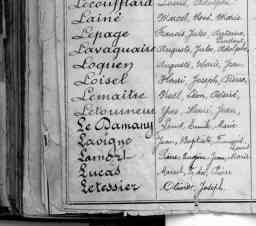 Lecouffard Louis, Adolphe
Lainé Marcel, René, Marie
Lepage Francis, Jules,
Lavaquaire Auguste, Jules, Adolphe
Loguen Auguste, Marie, Jean
Loisel Henri, Joseph, Pierre
Lemaître Noël, Léon, Désiré
Letourneur Yves, Henri, Jean,
Le Damany Louis, Emile, Marie
Lavigne Jean, Baptiste, François
Lamort Pierre, Eugène, Jean, Marie
Lucas Marcel,
Letessier Olivier, Joseph.